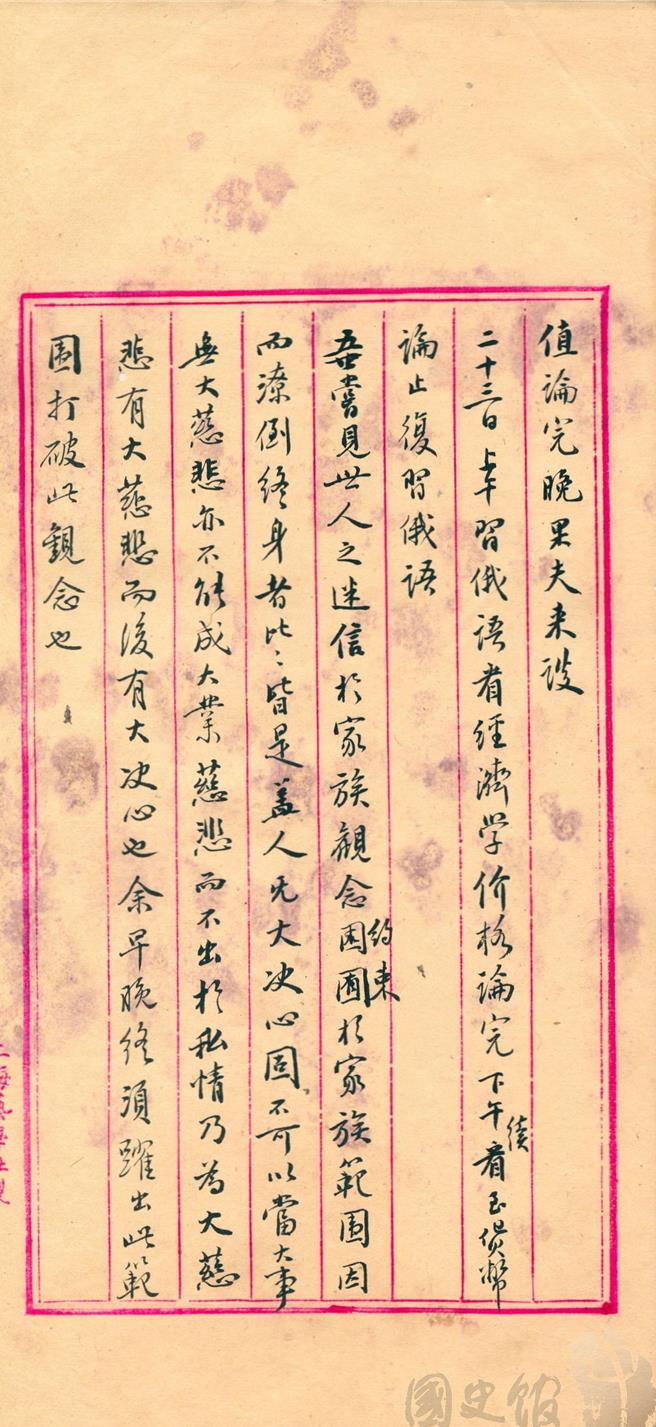 值論完晚果夫来談
二十三日上午習俄語看經濟学价格論完下午續看至貨幣
論止復習俄語
吾嘗見世人之迷信於家族觀念困囿約束於家族範圍因
而潦倒終身者比〻皆是盖人无大决心固不可以當大事
無大慈悲亦不能成大業慈悲而不出於私情乃為大慈
悲有大慈悲而後有大决心也余早晚終須躍出此範
圍打破此觀念也
上海藝學社製
國史館